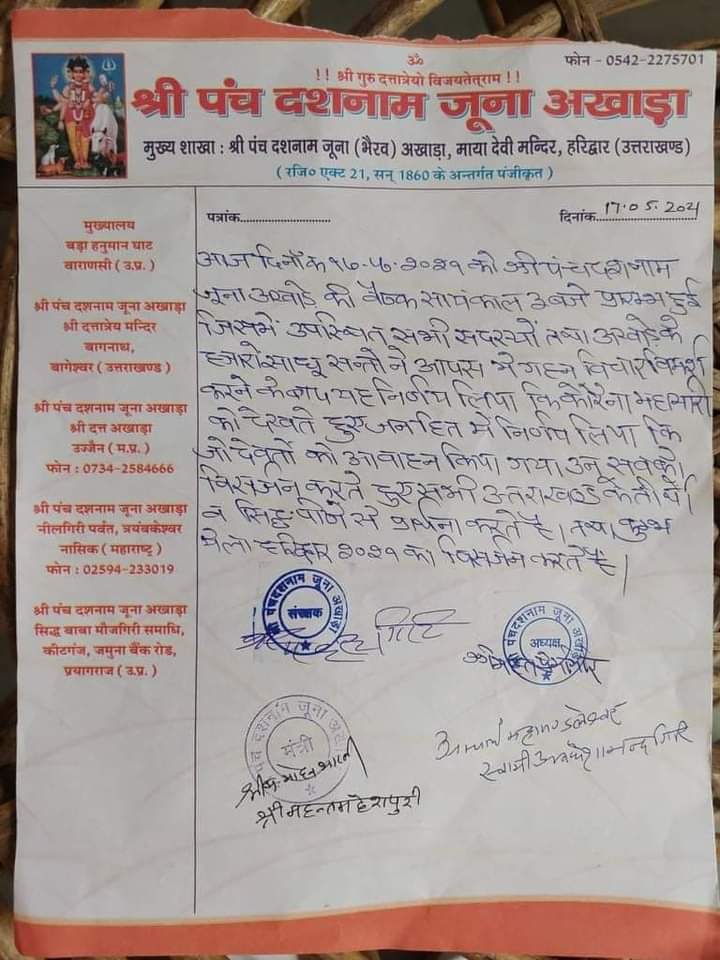 ॐ
फोन - 0542-2275701
!! श्री गुरु दत्तात्रेयो विजयतेत्राम !!
श्री पंच दशनाम जूना अखाड़ा
मुख्य शाखा : श्री पंच दशनाम जूना (भैरव) अखाड़ा, माया देवी मन्दिर, हरिद्वार (उत्तराखण्ड)
( रजि० एक्ट 21, सन् 1860 के अन्तर्गत पंजीकृत )
पत्रांक..............................
दिनांक...17.05.2021
मुख्यालय
बड़ा हनुमान घाट
वाराणसी ( उ.प्र. )
श्री पंच दशनाम जूना अखाड़ा
श्री दत्तात्रेय मन्दिर
बागनाथ,
बागेश्वर ( उत्तराखण्ड )
श्री पंच दशनाम जूना अखाड़ा
श्री दत्त अखाड़ा
उज्जैन ( म.प्र. )
फोन : 0734-2584666
श्री पंच दशनाम जूना अखाड़ा
नीलगिरी पर्वत, त्रयंबकेश्वर
नासिक ( महाराष्ट्र )
फोन : 02594-233019
श्री पंच दशनाम जूना अखाड़ा
सिद्ध बाबा मौजगिरी समाधि,
कीटगंज, जमुना बैंक रोड,
प्रयागराज ( उ.प्र. )
आज दिनाँक १७-५-२०२१ को श्री पंचदशनाम
जूना अखाड़े की बैठक सायंकाल ३बजे प्रारम्भ हुई
जिसमें उपस्थित सभी सदस्यों तथा अखाड़े के
हजारो साधू सन्तो ने आपस मे गहन विचार विमर्श
करने के बाद यह निर्णय लिया कि कोरोना महामारी
को देखते हुए जनहित मे निर्णय लिया कि
जो देवतों को आवाहन किया गया उन सबको
विसर्जन करते हुए सभी उत्तराखण्ड के तीर्थो
व से प्रार्थना करते है। तथा कुम्भ
मेला हरिद्वार २०२१ का विसर्जन करते हैं।
पंचदशनाम जूना अखाड़ा
संरक्षक
गिरि
पंचदशनाम जूना अखाड़ा
अध्यक्ष
पंच दशनाम जूना अखाड़ा
मंत्री
श्री महन्त महेशपुरी
आचार्य महामण्डलेश्वर
स्वामी अवधेशानन्द गिरि